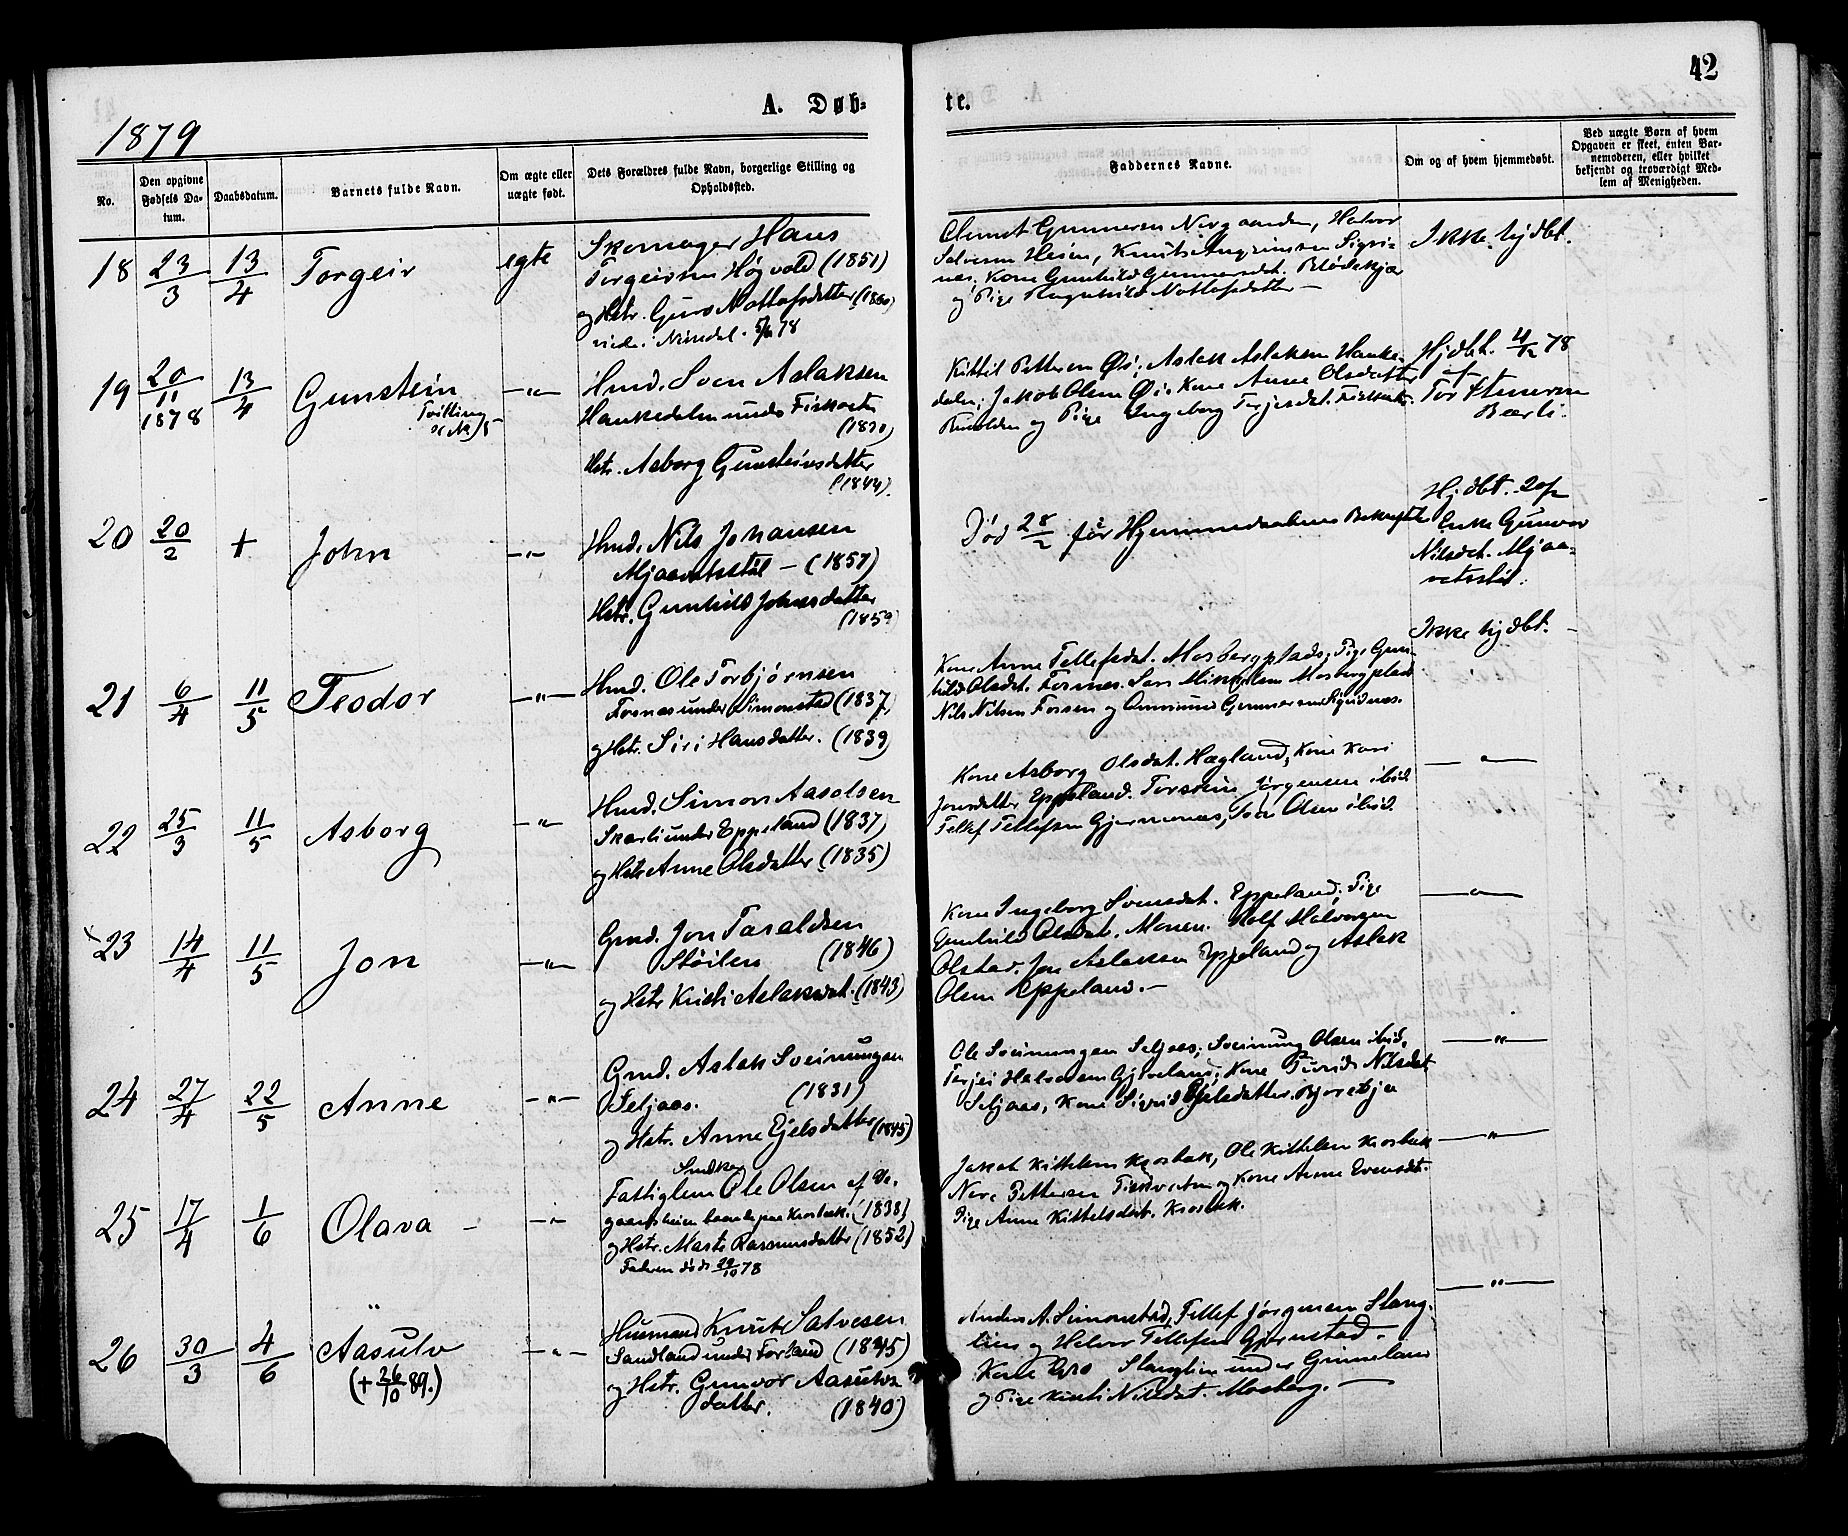 42
A. Døb-
te.
1879
No.
Den opgivne Fødsels Da-
tum.
Daabsdatum.
Barnets fulde Navn.
Om ægte eller
uægte født.
Dets Forældres fulde Navn, borgerlige Stilling og
Opholdssted.
Faddernes Navne.
Om og af hvem hjemmedøbt.
Ved uægte Børn af hvem
Opgaven er skeet, enten Bar-
nemoderen, eller hvilket
bekjendt og troværdigt Med-
lem af Menigheden.
18 23/3 13/4 Torgeir egte
Skomager Hans
Torgeirsen Høgvold (1851)
og Hstr. Guro Nottolfsdatter (1860)
viede Nissedal 78
Gunnersen Nergaarden, Halvor
Salvesen Heien, Knut
nes. Kone Gunhild Gunnersdat.
og Pige Ragnhild Nottolfsdatter —
Ikke hjdbt.
19 20/11 1878 13/4 Gunstein —"—
Tvilling
Hmd. Sven Aslaksen
Hankedalen under
(1820)
Hstr. Asborg Gunsteinsdatter
(1844).
Kittil Pettersen Øi; Aslak Aslaksen Hanke-
dalen; Jakob Olsen Øi. Kone Anne Olsdatter
og Pige Ingeborg Terjesdat.
Hjdbt. 4/12 78
af
Tor Stenersen
Beerli.
20 20/2 + John —"—
Hmd. Nils Johansen
Mjaavatsstøl — (1857)
Hstr. Gunhild Johnsdatter
(1859)
Død 28/2 før Hjemmedaabens Bekræftelse
Hjdbt. 20/2
Enke Gunvor
Nilsdat. Mjaa-
vatsstøl.
21 6/4 11/5 Teodor —"—
Hmd. Ole Torbjørnsen
Fosnes under Simonstad (1837)
og Hstr. Siri Hansdatter. (1839)
Kone Anne Tellefsdat. Mosbergplads; Pige Gun-
hild Olsdat. Mosbergplads
Nils Nilsen og Gunnersen Sigridnes.
Ikke hjdbt. —
22 25/3 11/5 Asborg —"—
Hmd. Simon Aasolsen
Skarli under Eppeland (1837)
og Hstr Anne Olsdatter (1835)
Kone Asborg Olsdat. Hægland, Kone Kari
Jonsdatter Eppeland. Torstein Jörgensen ibid.
Tellef Tellefsen Gjermenes, Tor Olsen ibid.
—"—
23 14/4 11/5 Jon —"—
Gmd. Jon Taraldsen
Støilen (1846)
og Hstr Kristi Aslaksdat. (1843)
Kone Ingeborg Svensdat. Eppeland; Pige
Gunhild Olsdat. Monen. Rolf Halvorsen
Olstad. Jon Aslaksen Eppeland og Aslak
Olsen Eppeland. —
—"—
24 27/4 22/5 Anne —"—
Gmd. Aslak Sveinungsen
Seljaas. (1831)
og Hstr. Anne Ejelsdatter (1845)
Ole Sveinungsen Seljaas; Sveinung Olsen ibid.
Terjei Halvorsen Gjeveland; Kone Turid Nilsdat
Seljaas, Kone Sigrid Ejelsdatter.
—"—
25 17/4 1/6 Olava — —"—
Snedker
Fattiglem Ole Olsen af
(1838)
og Hstr. Marte Rasmusdatter (1852)
Faderen død 29/10 78
Jakob Kittelsen Krosbæk, Ole Kittelsen Krosbæk
Pettersen og Kone Anne Evensdt.
Pige Anne Kittelsdat. Krosbæk.
—"—
26 30/3 4/6 Aasulv —"—
(+ 26/10 89.)
Husmand Knut Salvesen
Sandland under Forland (1845)
og Hstr. Gunvor Aasulvs-
datter. (1840)
Anders A. Simonstad, Tellef Jörgensen Slang-
lien og Halvor Tellefsen Gjernstad.
Kone Gro Slanglien under Grimeland
og Pige Kristi Nilsdat. Mosberg. —
—"—